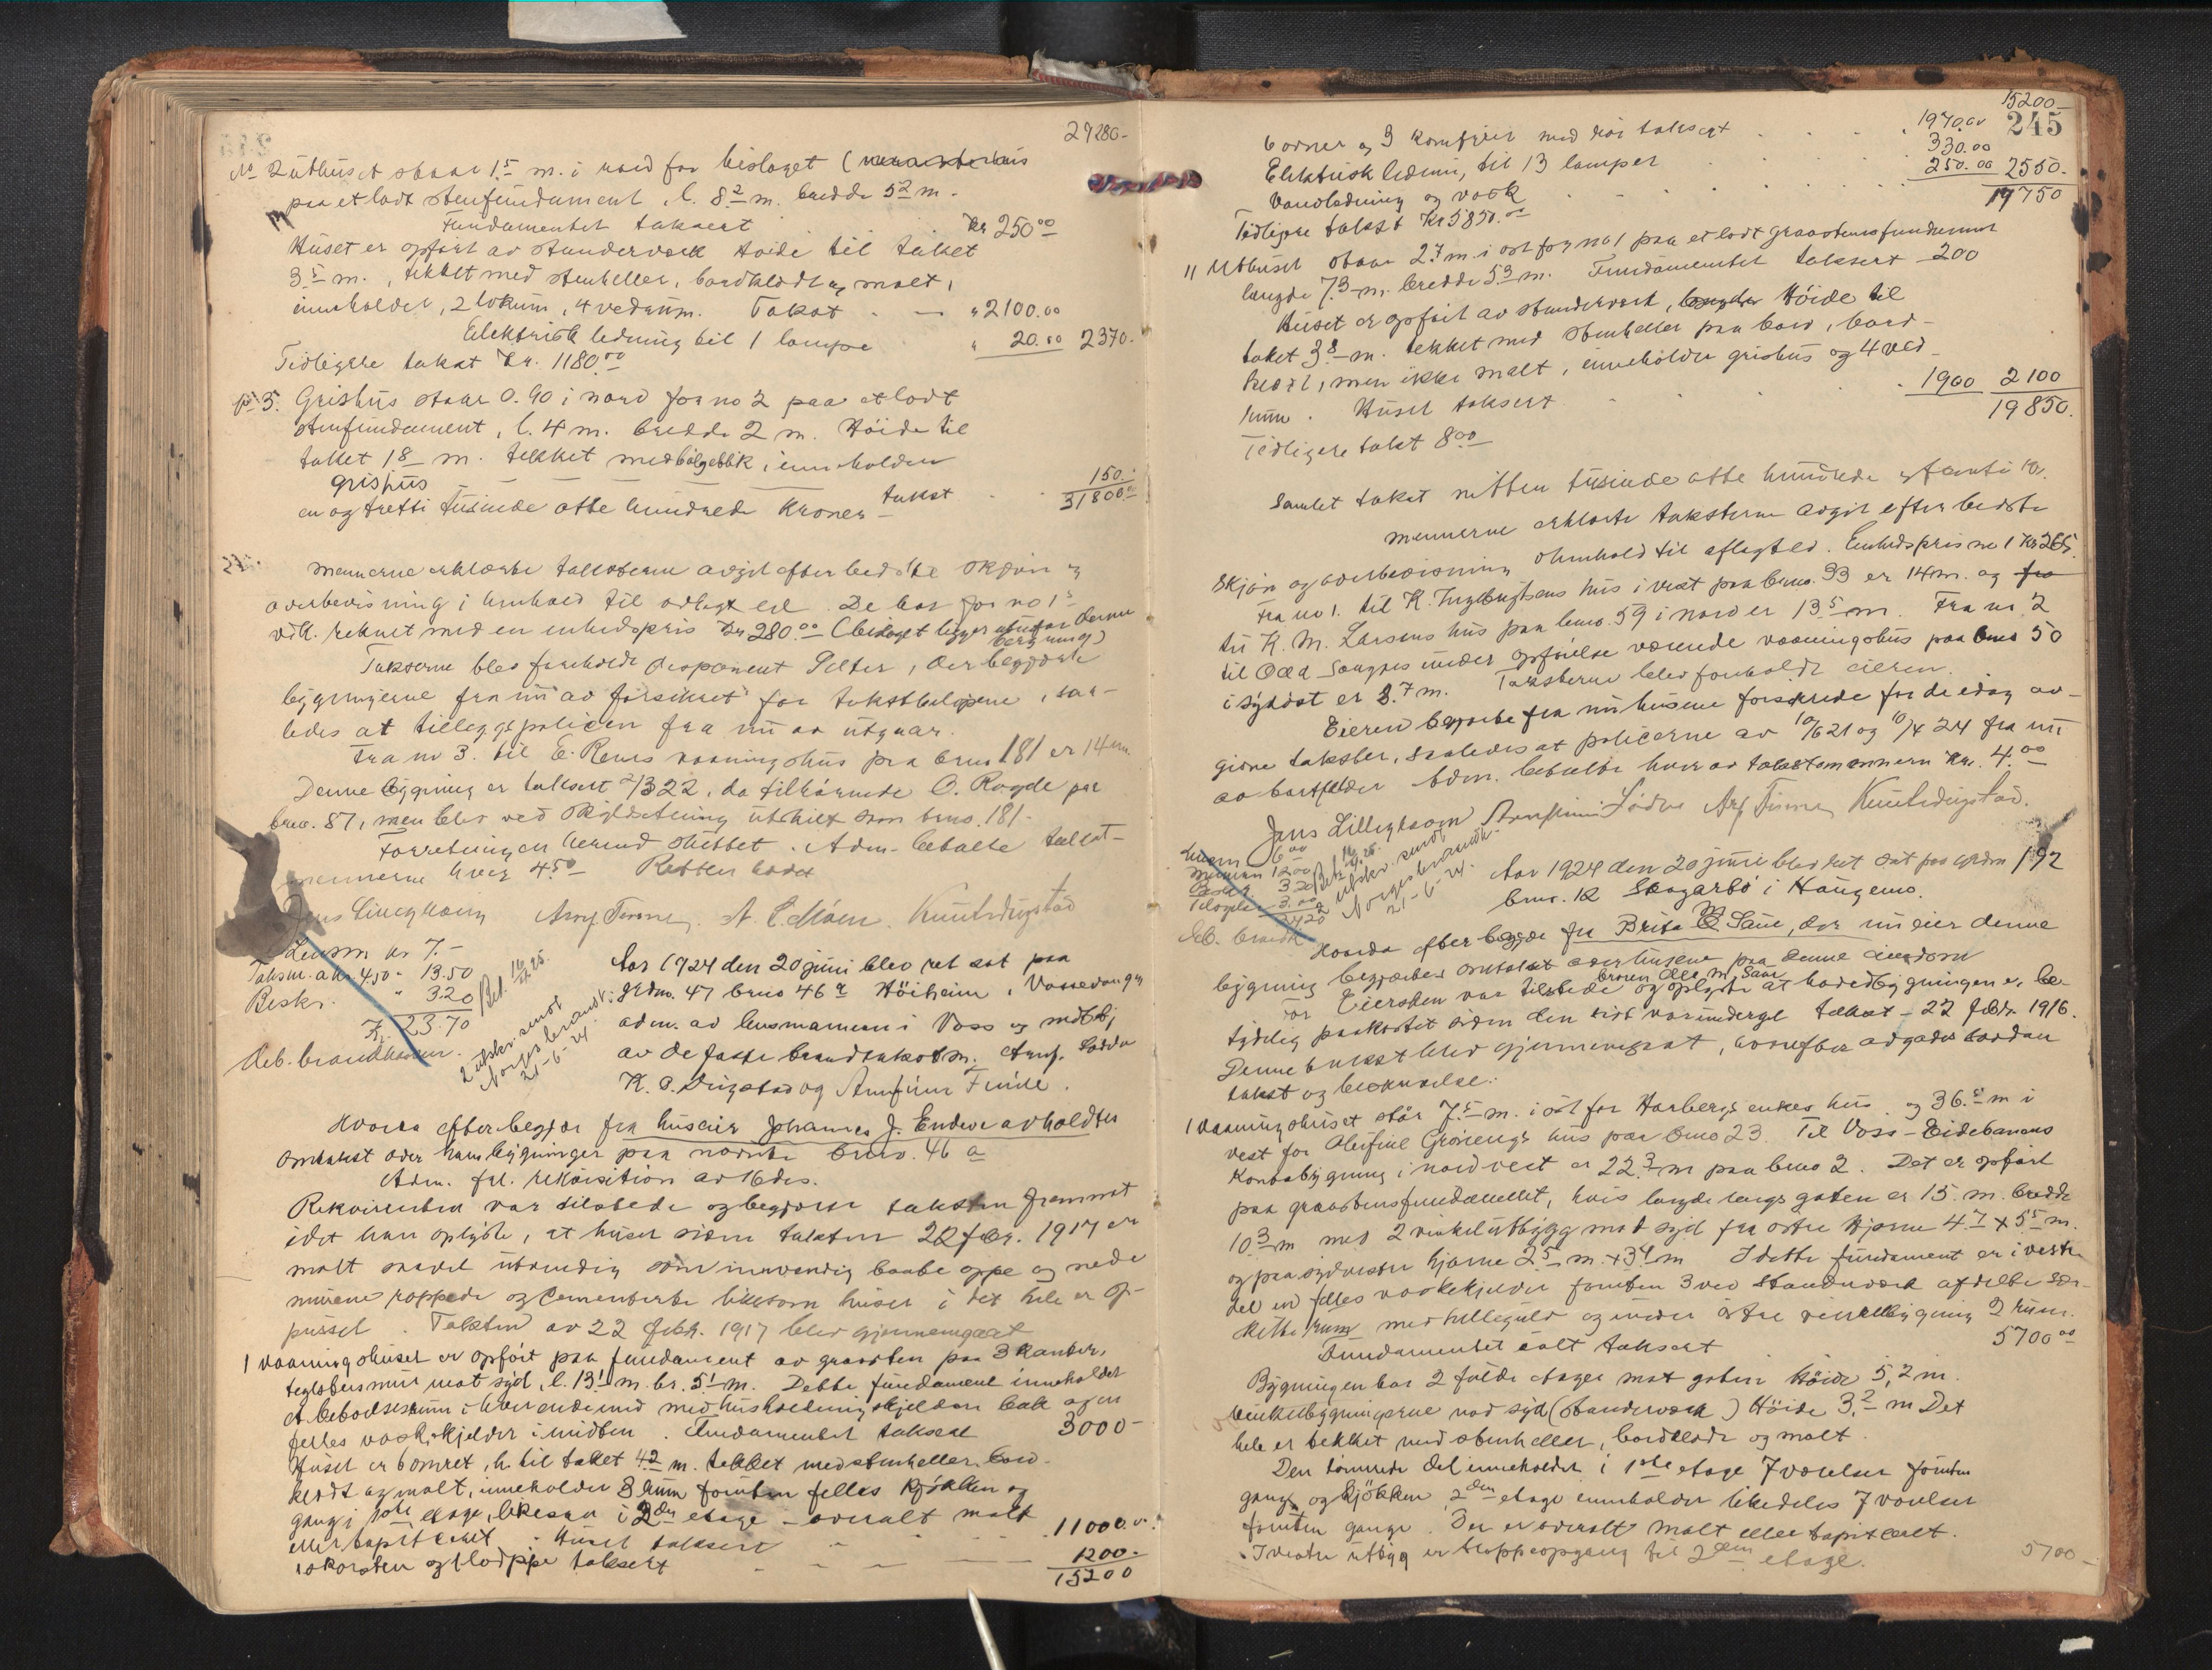 29280-
No 2 uthuset staar 1.5 m. i nord for bislaget
paa et lodt stenfundament, l. 8.2 m. bredde 5.2 m.
Fundamentet taksert Kr 250.00
Huset er opført av standerverk Høide til taket
3.5 m., tekket med stenheller, bordklædt og malt,
inneholder, 2 lokum, 4 vedrum. Takst - - " 2100.00
Elektrisk ledning til 1 lampe " 20.00 2370.
Tidligere takst kr. 1180.00
No 3. Grishus staar 0.90 i nord for no 2 paa et lodt
stenfundament, l. 4 m. bredde 2 m. Høide til
taket 1.8 m. tekket med bølgeblik, inneholder
grishus takst 150.-
en og tretti tusinde otte hundrede Kroner 31800.00
Mennerne erklærte taksterne avgit efter bedste skjøn og
overbevisning i henhold til avlagt ed. De har for no 1's
vedk. reknet med en enhedspris Kr 280.00 (bislaget ligger utenfor denne
beregning)
Taksterne blev foreholdt disponent Pelter, der begjærte
bygningerne fra nu av forsikret for takstbeløpene, saa-
ledes at tillægspolicen fra nu av utgaar.
Fra no 3. til E. Rens vaaningshus paa brno 181 er 14 m.
Denne bygning er taksert 2/3 22, da tilhørende O. Rogde paa
brno. 87, men blev ved skyldsetning utskilt som brno. 181.
Forretningen hermed sluttet. Adm. betalte takst-
mennerne hver 4.50 Retten hævet
Arnf. Finne. Knut Dugstad
Lensm kr 7.-
Taksm. a kr 4.50 - 13.50
Beskr. " 3.20
Kr 23.70
Deb. brandkassen.
2 utskr. sendt
Norges brandk.
21-6-24.
Aar 1924 den 20 juni blev ret sat paa
grdno. 47 brno 46a Høiheim i Vossevangen
adm. av lensmannen i Voss og møtt
av de faste brandtakstm. Arnf. Lødve
K. O. Dugstad og Arnfinn Finne.
Hvorda efter begjær fra huseier Johannes J. Endeve avholdtes
omtakst over hans bygninger paa nævnte brno. 46 a
Adm. frl. rekvisition av 16 ds.
Rekvirenten var tilstede og begjærte taksten fremmet
idet han oplyste, at huset siden taksten 22 febr. 1917 er
malt saavel utvendig som innvendig baade oppe og nede
murene rappede og cementerte likesom huset i det hele er op-
pusset. Taksten av 22 febr. 1917 blev gjennemgaat
1 Vaaningshuset er opført paa fundament av graasten paa 3 kanter,
teglstensmur mot syd, l. 13.1 m. br. 5.1 m. Dette fundament inneholder
et beboelsesrum i hver ende med husholdningskjelder bak og en
felles vaskekjelder i midten. Fundamentet taksert 3000-
Huset er tømret, h. til taket 4.2 m. tekket med stenheller, bord-
klædt og malt, inneholder 3 rum foruten felles kjøkken og
gang i 1ste etage, likesaa i 2den etage - overalt malt
eller tapitseret. Huset taksert - - 11000.00
skorsten og flodpipe taksert - - - 1200.-
15200
15200-
245
6 ovner og 3 komfyrer med rør taksert . . . 1970.00
Elektrisk ledning til 13 lamper . . . 330.00
Vandledning og vask . . . 250.00 2550.
17750
Tidligere takst Kr 5850.00
11 Uthuset staar 2.7 m. i øst for no 1 paa et lodt graastensfundament
længde 7.3 m. bredde 5.3 m. Fundamentet taksert 200
Huset er opført av standerverk, Høide til
taket 3.8 m. tekket med stenheller paa bord, bord-
klædt, men ikke malt, inneholder grishus og 4 ved-
rum. Huset taksert . . 1900 2100
19850.
Tidligere takst 800
Samlet takst nitten tusinde otte hundrede og femti kr.
Mennerne erklærte taksterne avgit efter bedste
skjøn og overbevisning i henhold til aflagt ed. Enhedspris no 1 kr 265.
Fra no 1. til K. Ingebrigtsens hus i vest paa brno. 33 er 14 m. og
til K. M. Larsens hus paa brno. 59 i nord er 13.5 m. Fra no. 2
til Odd Songres under opførelse værende vaaningshus paa brno 50
i sydøst er 3.7 m. Taksterne blev foreholdt eieren.
Eieren begjærte fra nu husene forsikrede for de idag av-
givne takster, saaledes at policerne av 10/6 21 og 10/4 24 fra nu
av bortfalder. Adm. betalte hver av takstmennerne kr. 4.00
Jens Lillegraven Arnfinn Lødve Arnf. Finne Knut Dugstad.
Lensm 6.00
Mennene 12.00
Beskr. 3.20
24.20
Deb. brandk
utskr. sendt
Norges brandk.
21-6-24.
Aar 1924 den 20 juni blev ret sat paa grdno 192
brno. 12 Skogarbø i Haugemo.
Hvorda efter begjær fra Brita M Saue, der nu eier denne
bygning begjæres omtakst over husene paa denne eiendom
For eiersken var tilstede broren Olav M. Saue og oplyste at hovedbygningen er be-
tydelig paakostet siden den sist var undergit takst - 22 febr 1916.
Denne takst blev gjennemgaat, hvorefter avgaves saadan
takst og beskrivelse:
1 Vaaningshuset står 7.5 m. i øst for Harbergs enkes hus og 36.5 m i
vest for Oleifine Grønengs hus paa brno 23. Til Voss-Eidebanens
Kontorbygning i nordvest er 22.3 m paa brno 2. Det er opført
paa graastensfundament, hvis længde langs gaten er 15 m. bredde
10.3 m med 2 vinkelutbygg mot syd fra østre hjørne 4.7 x 5.5 m.
og paa sydvestre hjørne 2.5 m. x 3.4 m I dette fundament er i vestre
del en felles vaskekjelder foruten 3 ved standerverk afdelte sær-
skilte rum med hellegulv og under østre vinkelbygning 2 rum.
Fundamentet ialt taksert 5700.00
Bygningen har 2 fulde etager mot gaten Høide 5,2 m.
Vinkelbygningerne mod syd (standerverk) Høide 3.2 m Det
hele er tekket med stenheller, bordklædt og malt.
Den tømrede del inneholder i 1ste etage 7 værelser foruten
gang og kjøkken, 2den etage inneholder likedeles 7 værelser
foruten gange. Der er overalt malt eller tapitseret.
I vestre utbygg er trappeopgang til 2den etage. 5700-